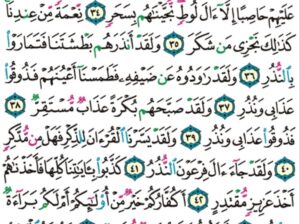 عَلَيْهِمْ حَاصِبًا إِلَّآ ءَالَ لُوطٍ نَّجَّيْنَٰهُم بِسَحَرٍ ٣٤ نِّعْمَةً مِّنْ عِندِنَا
كَذَٰلِكَ نَجْزِى مَن شَكَرَ ٣٥ وَلَقَدْ أَنذَرَهُم بَطْشَتَنَا فَتَمَارَوْا۟
بِٱلنُّذُرِ ٣٦ وَلَقَدْ رَٰوَدُوهُ عَن ضَيْفِهِۦ فَطَمَسْنَآ أَعْيُنَهُمْ فَذُوقُوا۟
عَذَابِى وَنُذُرِ ٣٧ وَلَقَدْ صَبَّحَهُم بُكْرَةً عَذَابٌ مُّسْتَقِرٌّ ٣٨
فَذُوقُوا۟ عَذَابِى وَنُذُرِ ٣٩ وَلَقَدْ يَسَّرْنَا ٱلْقُرْءَانَ لِلذِّكْرِ فَهَلْ مِن مُّدَّكِرٍ
٤٠ وَلَقَدْ جَآءَ ءَالَ فِرْعَوْنَ ٱلنُّذُرُ ٤١ كَذَّبُوا۟ بِـَٔايَٰتِنَا كُلِّهَا فَأَخَذْنَٰهُمْ
أَخْذَ عَزِيزٍ مُّقْتَدِرٍ ٤٢ أَكُفَّارُكُمْ خَيْرٌ مِّنْ أُو۟لَٰٓئِكُمْ أَمْ لَكُم بَرَآءَةٌ